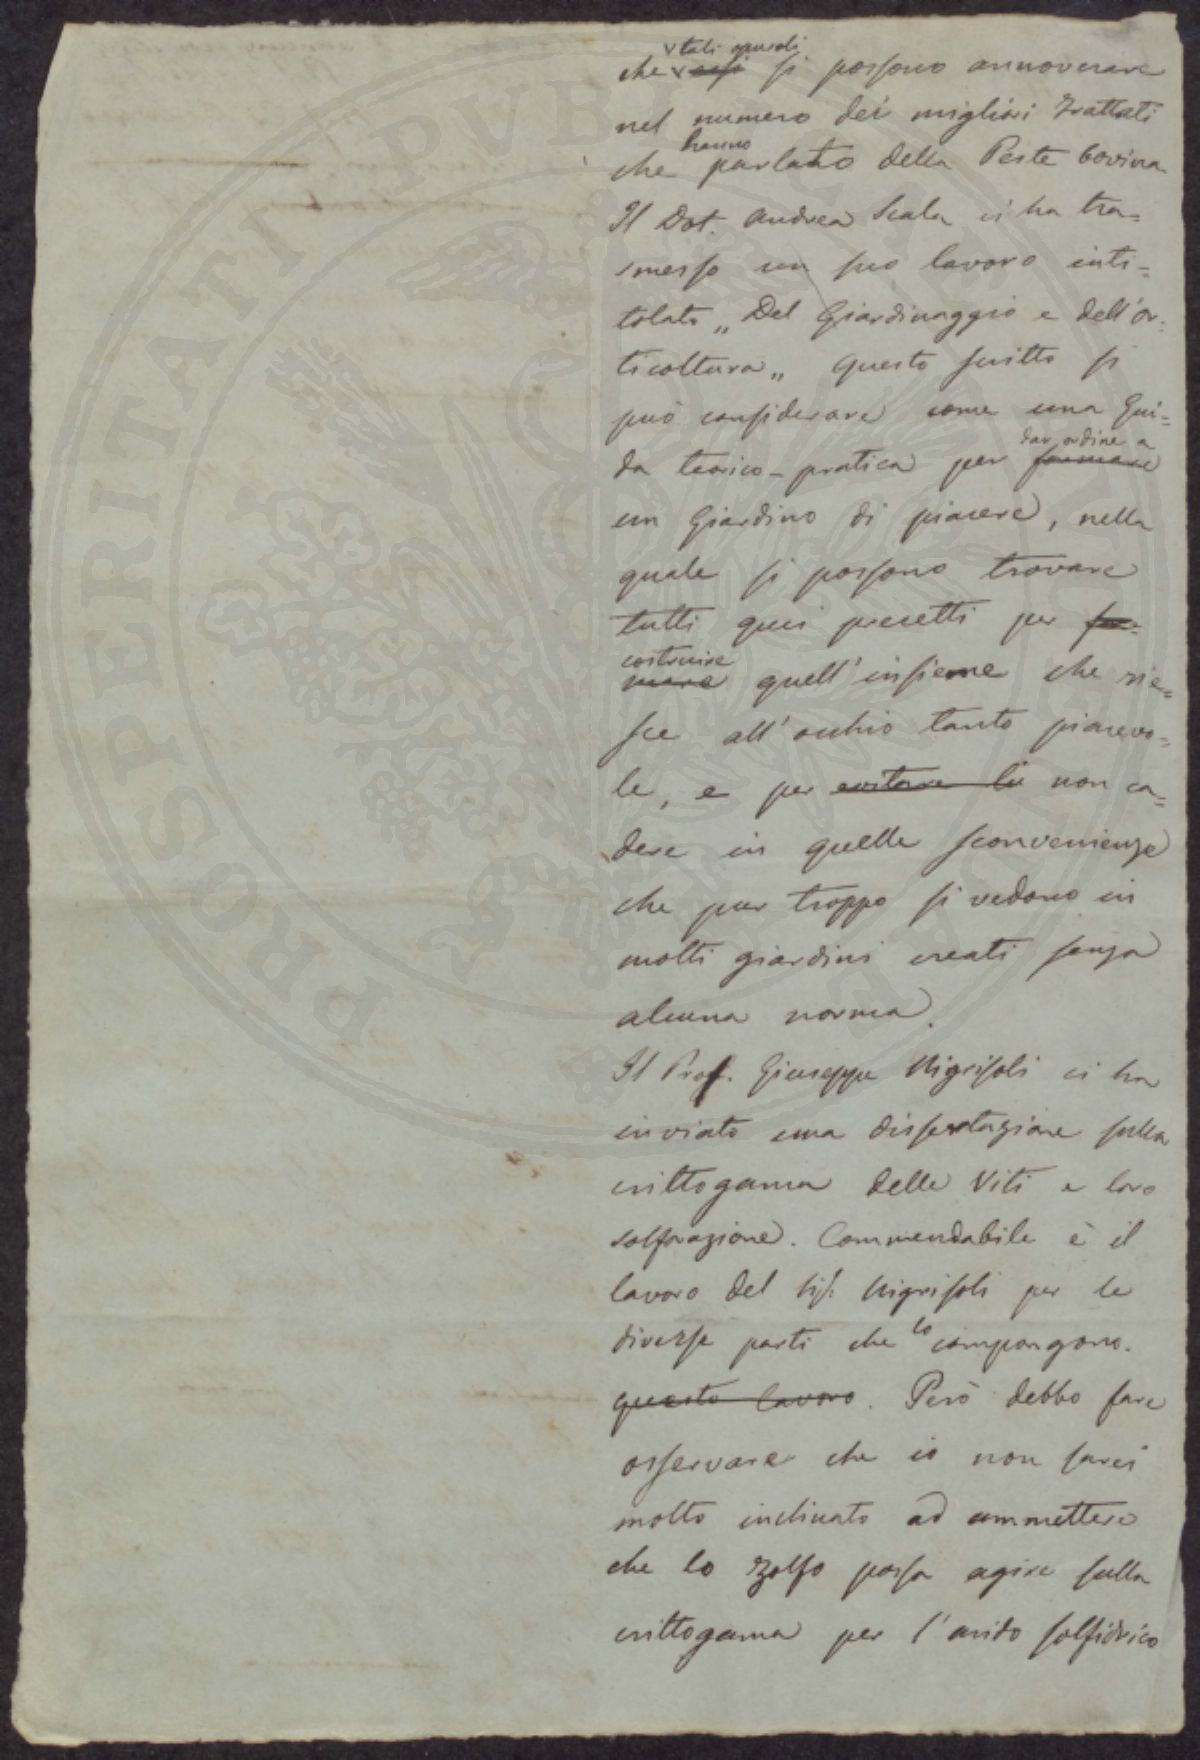 che ~~essi~~ tali opuscoli si possono annoverare
nel numero dei migliori trattati
che hanno parlato della Peste bovina
Il Dot. Andrea Scala ci ha tra=
smesso un suo lavoro inti=
tolato „Del Giardinaggio e dell'or=
ticoltura„ questo scritto si
può considerare come una Gui=
da teorico-pratica per ~~formare~~ dar ordine a
un Giardino di piacere, nella
quale si possono trovare
tutti quei precetti per ~~for=~~
~~mare~~ costruire quell'insieme che rie=
sce all'occhio tanto piacevo=
le, e per ~~evitare li~~ non ca=
dere in quelle sconvenienze
che pur troppo si vedono in
molti giardini creati senza
alcuna norma.
Il Prof. Giuseppe Nigrisoli ci ha
inviato una dissertazione sulla
crittogama delle Viti e loro
solforazione. Commendabile è il
lavoro del Sig. Nigrisoli per le
diverse parti che lo compongono.
~~questo lavoro~~. Però debbo fare
osservare che io non sarei
molto inclinato ad ammettere
che lo Zolfo possa agire sulla
crittogama per l'acido solfidrico
PROSPERITATI PUBLICAE